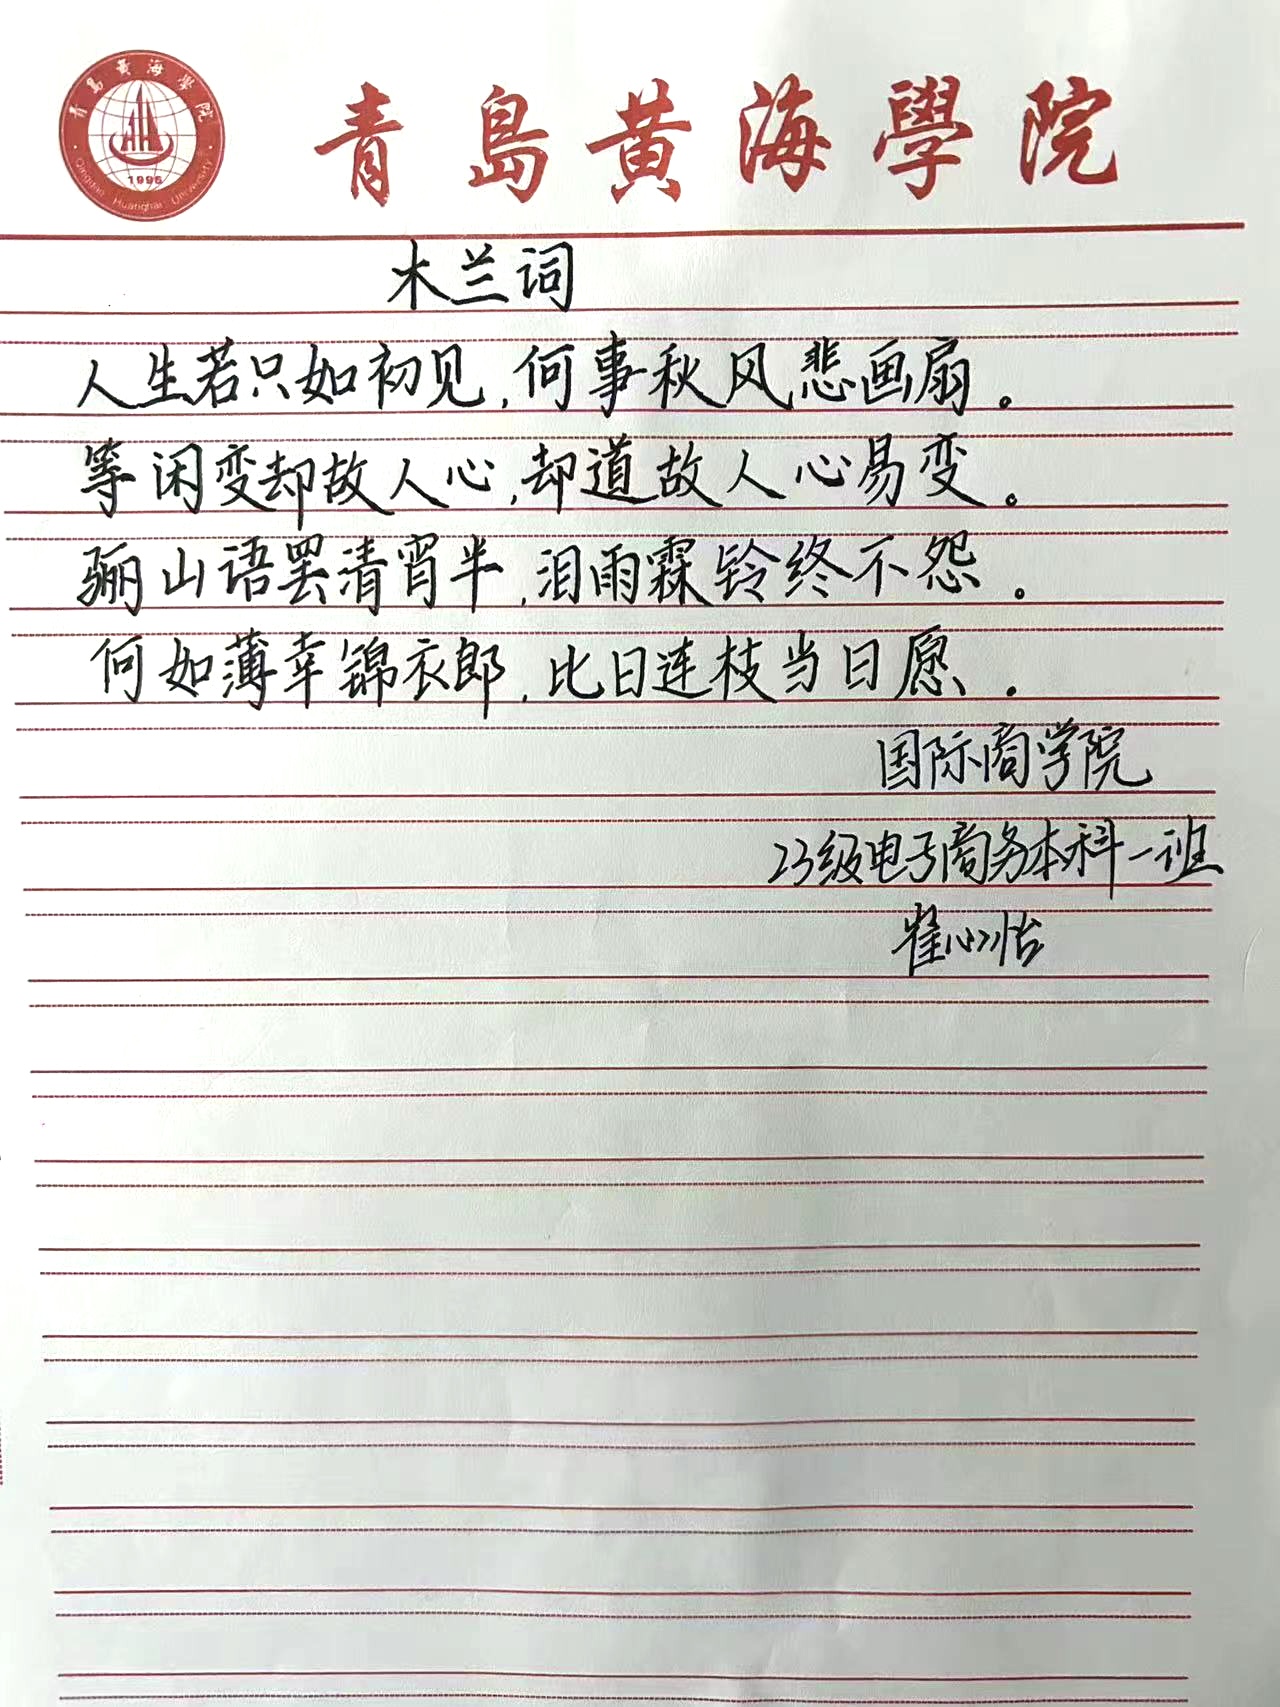 青島黄海學院
青島黄海學院
1996
Qingdao Huanghai University
木兰词
人生若只如初见,何事秋风悲画扇。
等闲变却故人心,却道故人心易变。
骊山语罢清宵半,泪雨霖铃终不怨。
何如薄幸锦衣郎,比日连枝当日愿。
国际商学院
23级电子商务本科一班
崔心怡